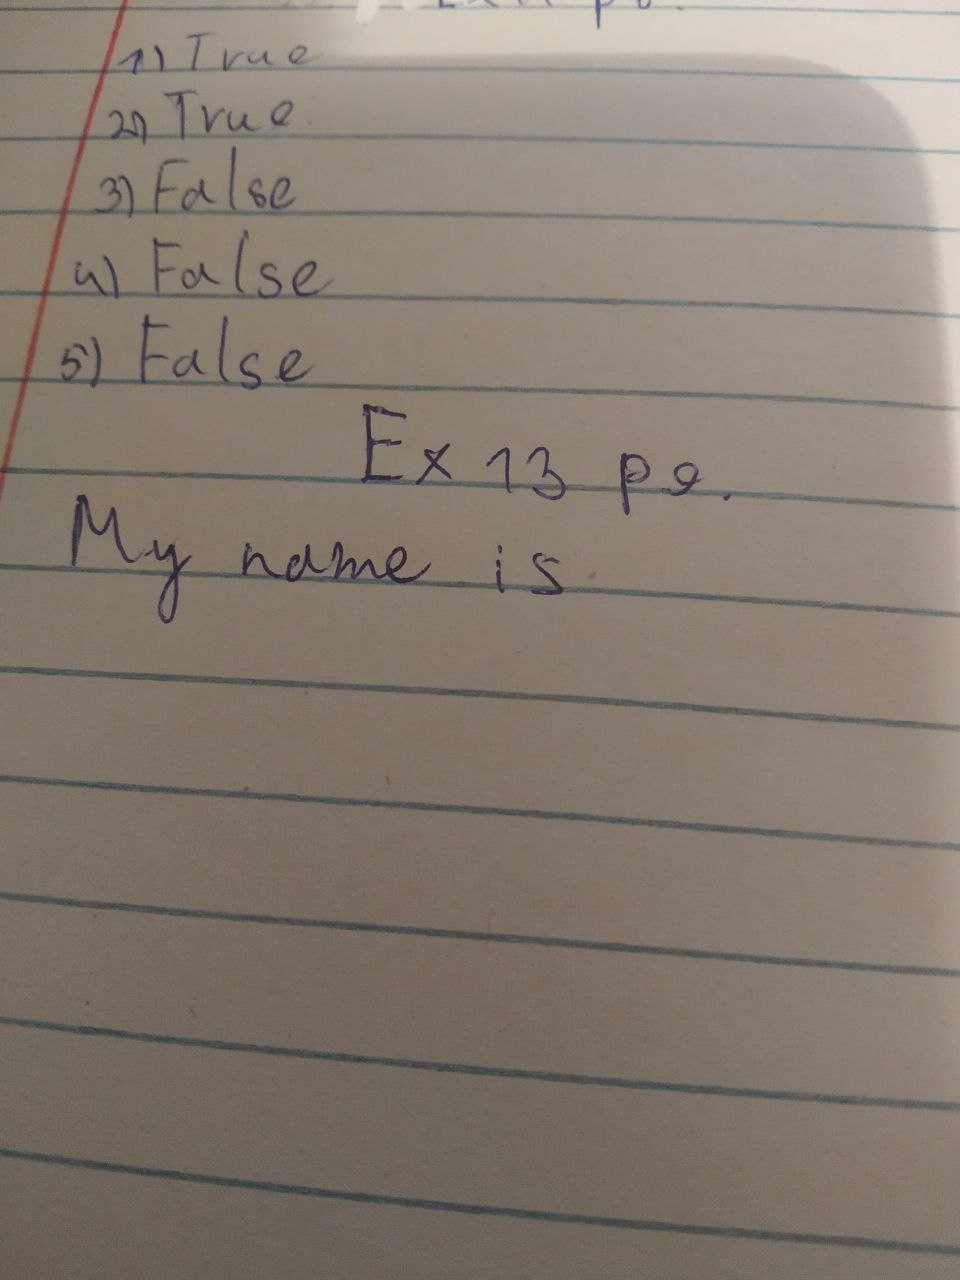 1) True
2) True
3) False
4) False
5) False
Ex 13 p 9.
My name is